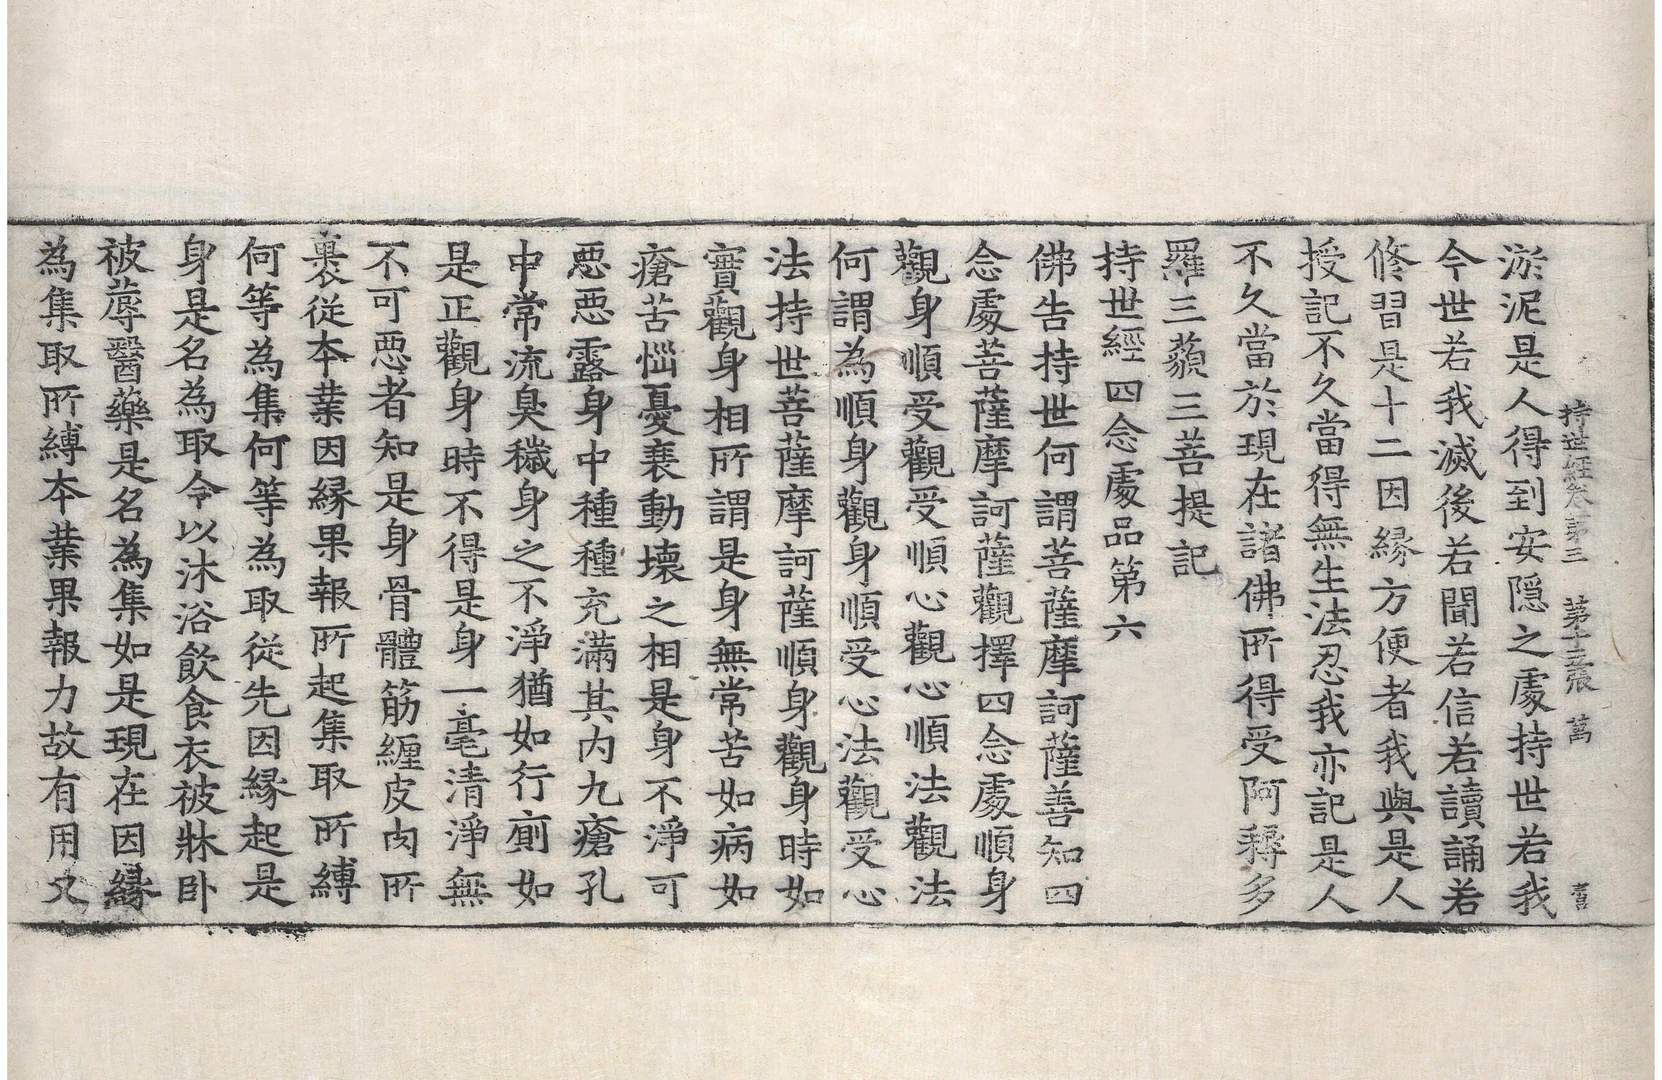 持世經卷第三 第十三張 萬
淤泥是人得到安隱之處持世若我
今世若我滅後若聞若信若讀誦若
修習是十二因緣方便者我與是人
授記不久當得無生法忍我亦記是人
不久當於現在諸佛所得受阿耨多
羅三藐三菩提記
持世經四念處品第六
佛告持世何謂菩薩摩訶薩善知四
念處菩薩摩訶薩觀擇四念處順身
觀身順受觀受順心觀心順法觀法
何謂為順身觀身順受心法觀受心
法持世菩薩摩訶薩順身觀身時如
實觀身相所謂是身無常苦如病如
瘡苦惱憂衰動壞之相是身不淨可
惡惡露身中種種充滿其內九瘡孔
中常流臭穢身之不淨猶如行廁如
是正觀身時不得是身一毫清淨無
不可惡者知是身骨體筋纏皮肉所
裹從本業因緣果報所起集取所縛
何等為集何等為取從先因緣起是
身是名為取今以沐浴飲食衣被牀卧
被蓐醫藥是名為集如是現在因緣
為集取所縛本業果報力故有用又